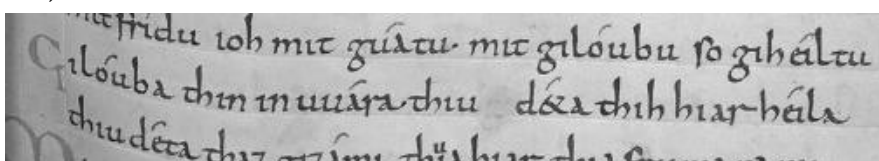 mit fridu ioh mit gúatu· mit gilóubu so gihéiltu
Gilóuba thin in uuára· thiu dé&a thih hiar héila
thiu déta thaz gizámi